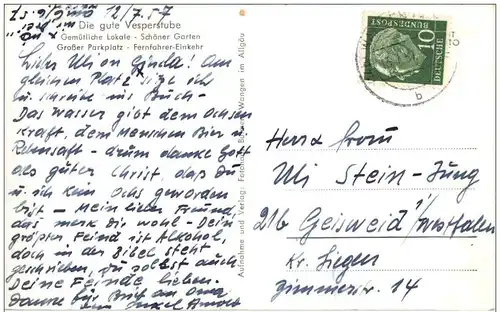 12/7.57
Die gute Vesperstube
Gemütliche Lokale · Schöner Garten
Großer Parkplatz · Fernfahrer-Einkehr
Lieber Uli u. Gisela! Am
gleichen Platz sitze ich
u. schreibe ins Buch-
Das Wasser gibt dem Ochsen
Kraft, dem Menschen Bier u
Rebensaft - drum danke Gott
als guter Christ, daß Du
u ich kein Ochs geworden
bist - Mein lieber Freund,
das merk dir wohl - Dein
größter Feind ist Alkohol,
doch in der Bibel steht
geschrieben, du sollst auch
Deine Feinde lieben.
Danke für Brief an Oma
Onkel Arnold
Aufnahme und Verlag: Wangen im Allgäu
10
DEUTSCHE
BUNDESPOST
b
Herr u Frau
Uli Stein-Jung
21b Geisweid i/Westfalen
Kr. Siegen
Zimmerstr. 14